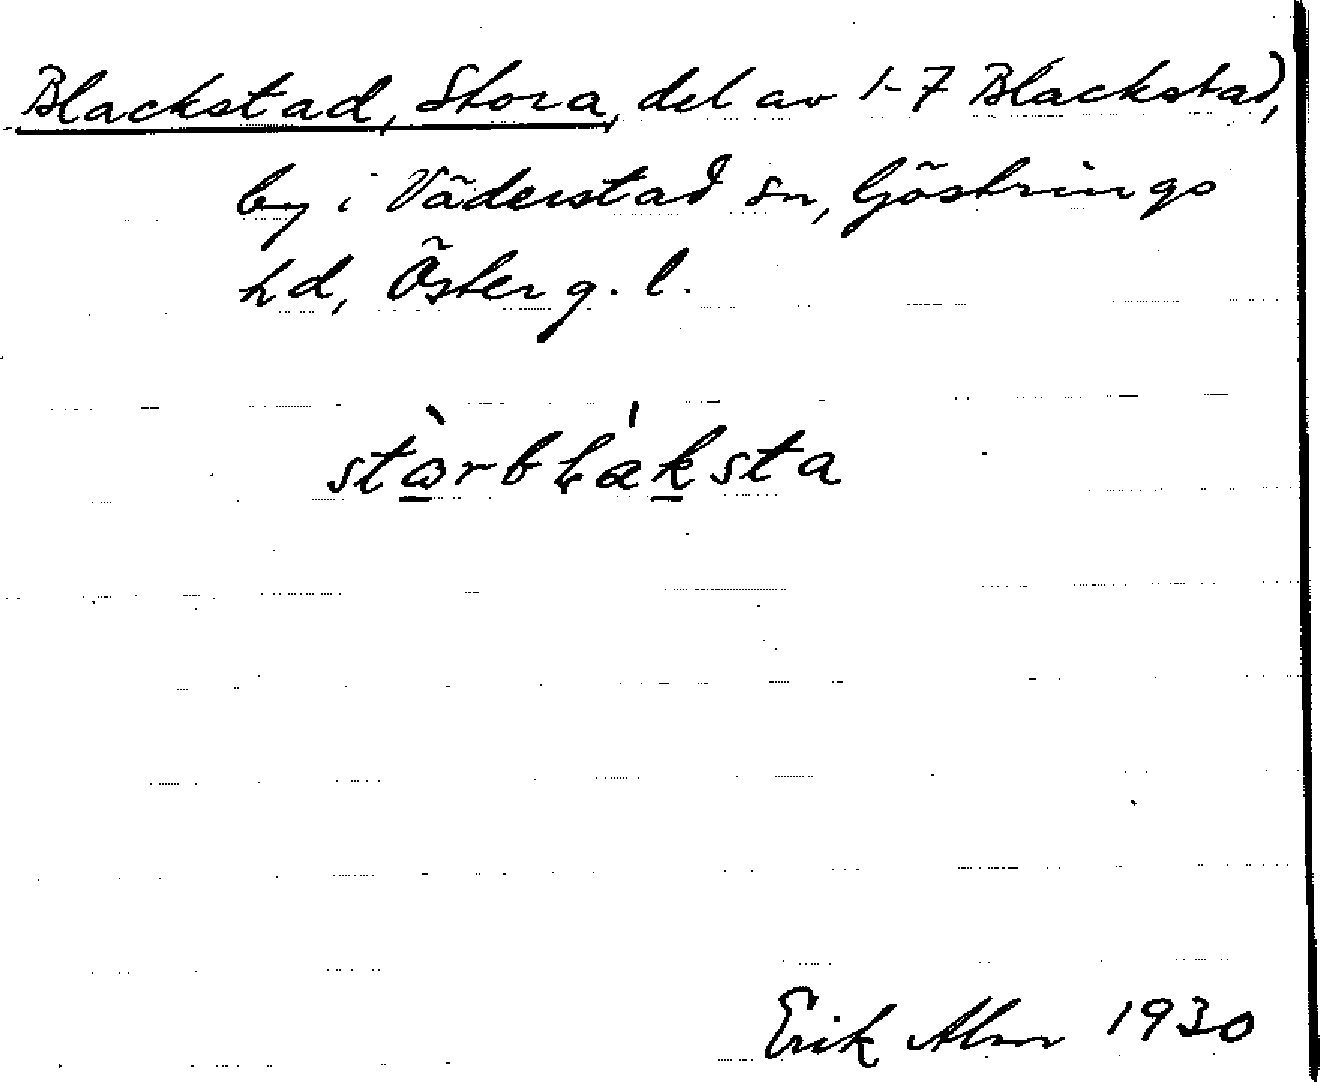 Blackstad, Stora, del av 1-7 Blackstad,
by i Väderstad sn, Göstrings
hd, Österg. l.
stòrbláksta
Erik Alm 1930